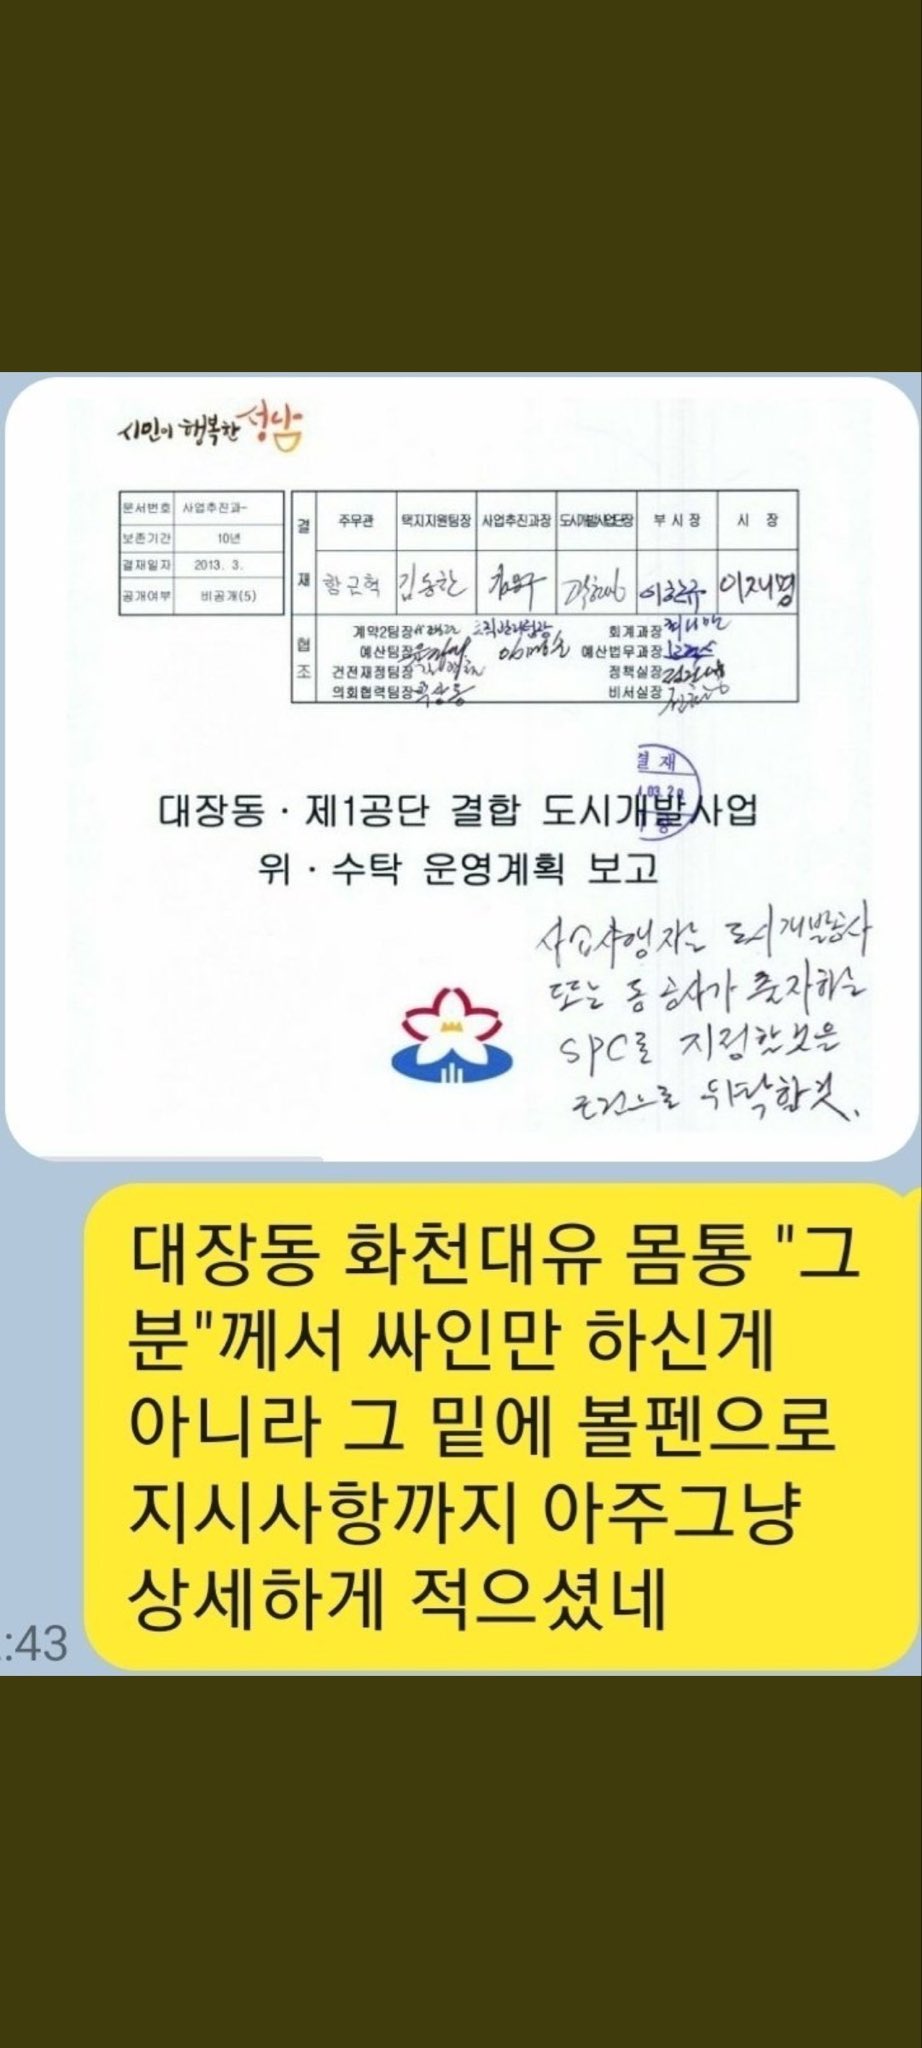 시민이 행복한 성남
문서번호 사업추진과-
보존기간 10년
결재일자 2013. 3.
공개여부 비공개(5)
결재
주무관 택지지원팀장 사업추진과장 도시개발사업단장 부시장 시장
황근혁 김동한 이한규 이재명
협조
계약2팀장 조직관리팀장 회계과장
예산팀장 예산법무과장
건전재정팀장 정책실장
의회협력팀장 비서실장
결재
대장동·제1공단 결합 도시개발사업
위·수탁 운영계획 보고
사업시행자는 도시개발공사
또는 동 공사가 출자하는
SPC로 지정할 것을
조건으로 위탁할 것.
대장동 화천대유 몸통 "그
분"께서 싸인만 하신게
아니라 그 밑에 볼펜으로
지시사항까지 아주그냥
상세하게 적으셨네
:43